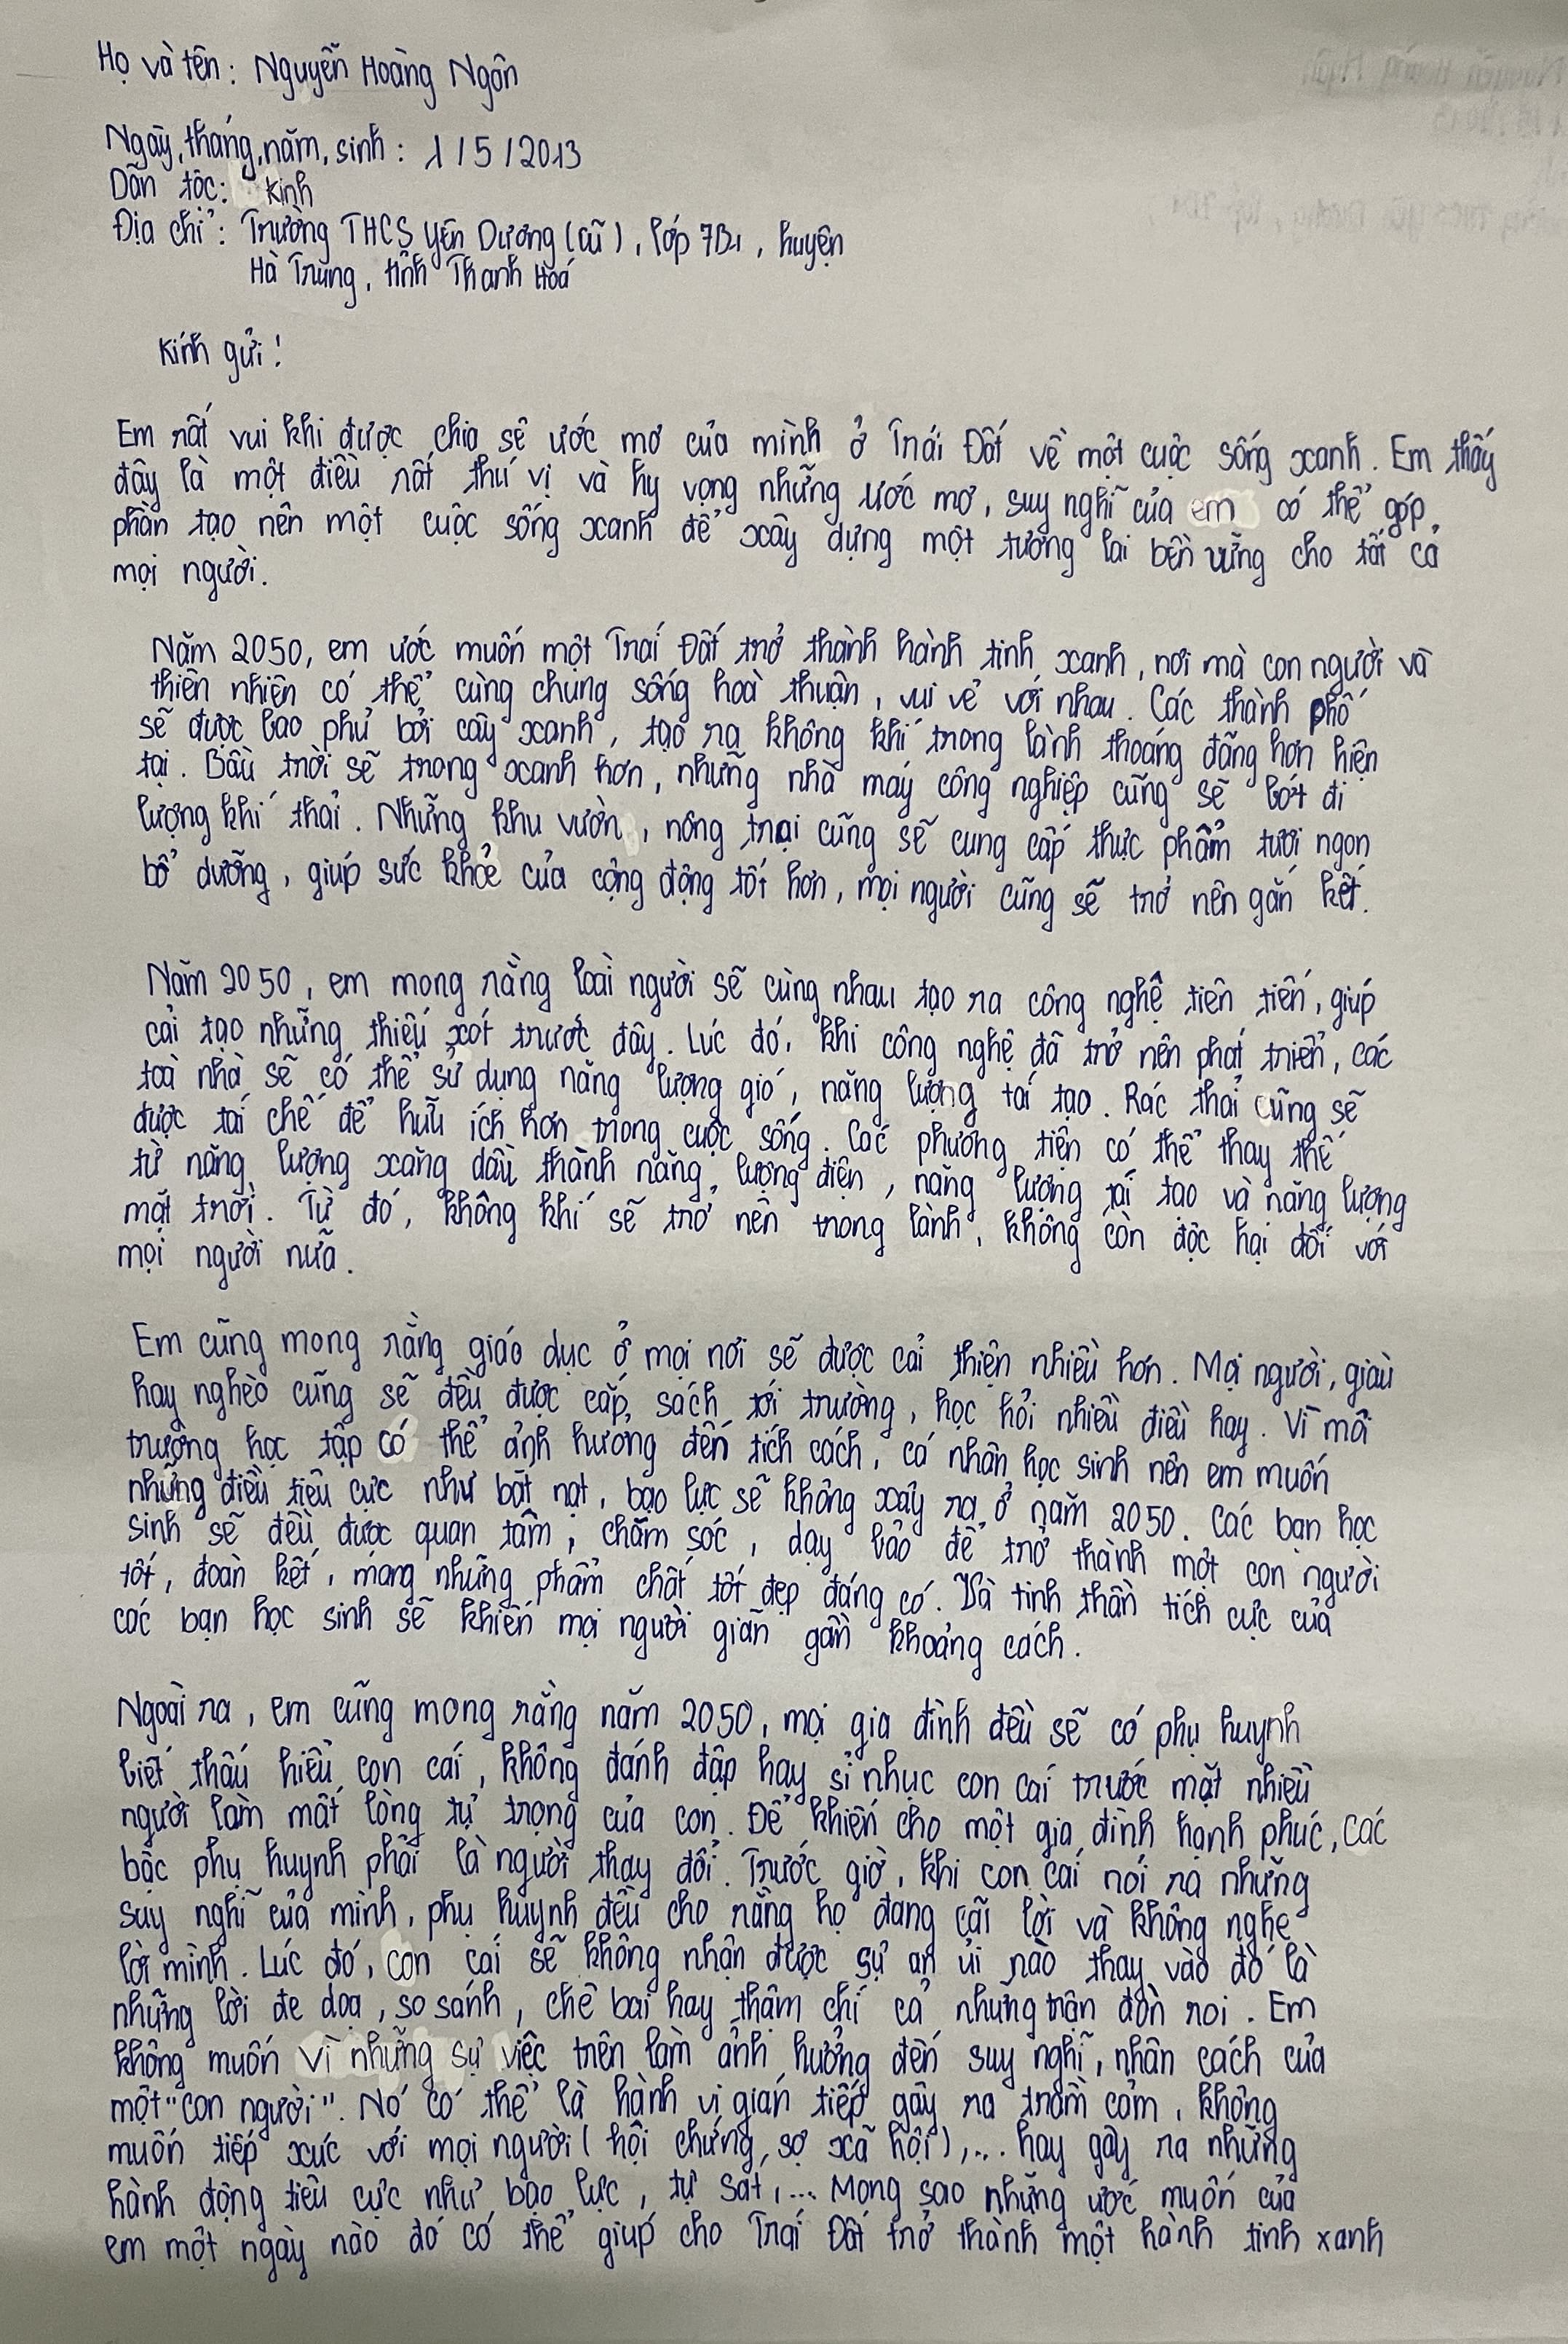 Họ và tên: Nguyễn Hoàng Ngân
Ngày, tháng, năm, sinh: 1/5/2013
Dân tộc: Kinh
Địa chỉ: Trường THCS Yên Dương (cũ), lớp 7B1, huyện
Hà Trung, tỉnh Thanh Hoá
Kính gửi!
Em rất vui khi được chia sẻ ước mơ của mình ở Trái Đất về một cuộc sống xanh. Em thấy
đây là một điều rất thú vị và hy vọng những ước mơ, suy nghĩ của em có thể góp
phần tạo nên một cuộc sống xanh để xây dựng một tương lai bền vững cho tất cả
mọi người.
Năm 2050, em ước muốn một Trái Đất trở thành hành tinh xanh, nơi mà con người và
thiên nhiên có thể cùng chung sống hoà thuận, vui vẻ với nhau. Các thành phố
sẽ được bao phủ bởi cây xanh, tạo ra không khí trong lành thoáng đãng hơn hiện
tại. Bầu trời sẽ trong xanh hơn, những nhà máy công nghiệp cũng sẽ bớt đi
lượng khí thải. Những khu vườn, nông trại cũng sẽ cung cấp thực phẩm tươi ngon
bổ dưỡng, giúp sức khỏe của cộng động tốt hơn, mọi người cũng sẽ trở nên gắn kết.
Năm 2050, em mong rằng loài người sẽ cùng nhau tạo ra công nghệ tiên tiến, giúp
cải tạo những thiếu xót trước đây. Lúc đó, khi công nghệ đã trở nên phát triển, các
toà nhà sẽ có thể sử dụng năng lượng gió, năng lượng tái tạo. Rác thải cũng sẽ
được tái chế để hữu ích hơn trong cuộc sống. Các phương tiện có thể thay thế
từ năng lượng xăng dầu thành năng lượng điện, năng lượng tái tạo và năng lượng
mặt trời. Từ đó, không khí sẽ trở nên trong lành, không còn độc hại đối với
mọi người nữa.
Em cũng mong rằng giáo dục ở mọi nơi sẽ được cải thiện nhiều hơn. Mọi người, giàu
hay nghèo cũng sẽ đều được cắp sách tới trường, học hỏi nhiều điều hay. Vì môi
trường học tập có thể ảnh hương đến tích cách, cá nhân học sinh nên em muốn
những điều tiêu cực như bắt nạt, bạo lực sẽ không xảy ra ở năm 2050. Các bạn học
sinh sẽ đều được quan tâm, chăm sóc, dạy bảo để trở thành một con người
tốt, đoàn kết, mang những phẩm chất tốt đẹp đáng có. Và tinh thần tích cực của
các bạn học sinh sẽ khiến mọi người giãn gần khoảng cách.
Ngoài ra, em cũng mong rằng năm 2050, mọi gia đình đều sẽ có phụ huynh
biết thấu hiểu con cái, không đánh đập hay sỉ nhục con cái trước mặt nhiều
người làm mất lòng tự trọng của con. Để khiến cho một gia đình hạnh phúc, các
bậc phụ huynh phải là người thay đổi. Trước giờ, khi con cái nói ra những
suy nghĩ của mình, phụ huynh đều cho rằng họ đang cãi lời và không nghe
lời mình. Lúc đó, con cái sẽ không nhận được sự an ủi nào thay vào đó là
những lời đe doạ, so sánh, chê bai hay thậm chí cả những trận đòn roi. Em
không muốn vì những sự việc trên làm ảnh hưởng đến suy nghĩ, nhân cách của
một "con người". Nó có thể là hành vi gián tiếp gây ra trầm cảm, không
muốn tiếp xúc với mọi người (hội chứng sợ xã hội),... hay gây ra những
hành động tiêu cực như bạo lực, tự sát,... Mong sao những ước muốn của
em một ngày nào đó có thể giúp cho Trái Đất trở thành một hành tinh xanh